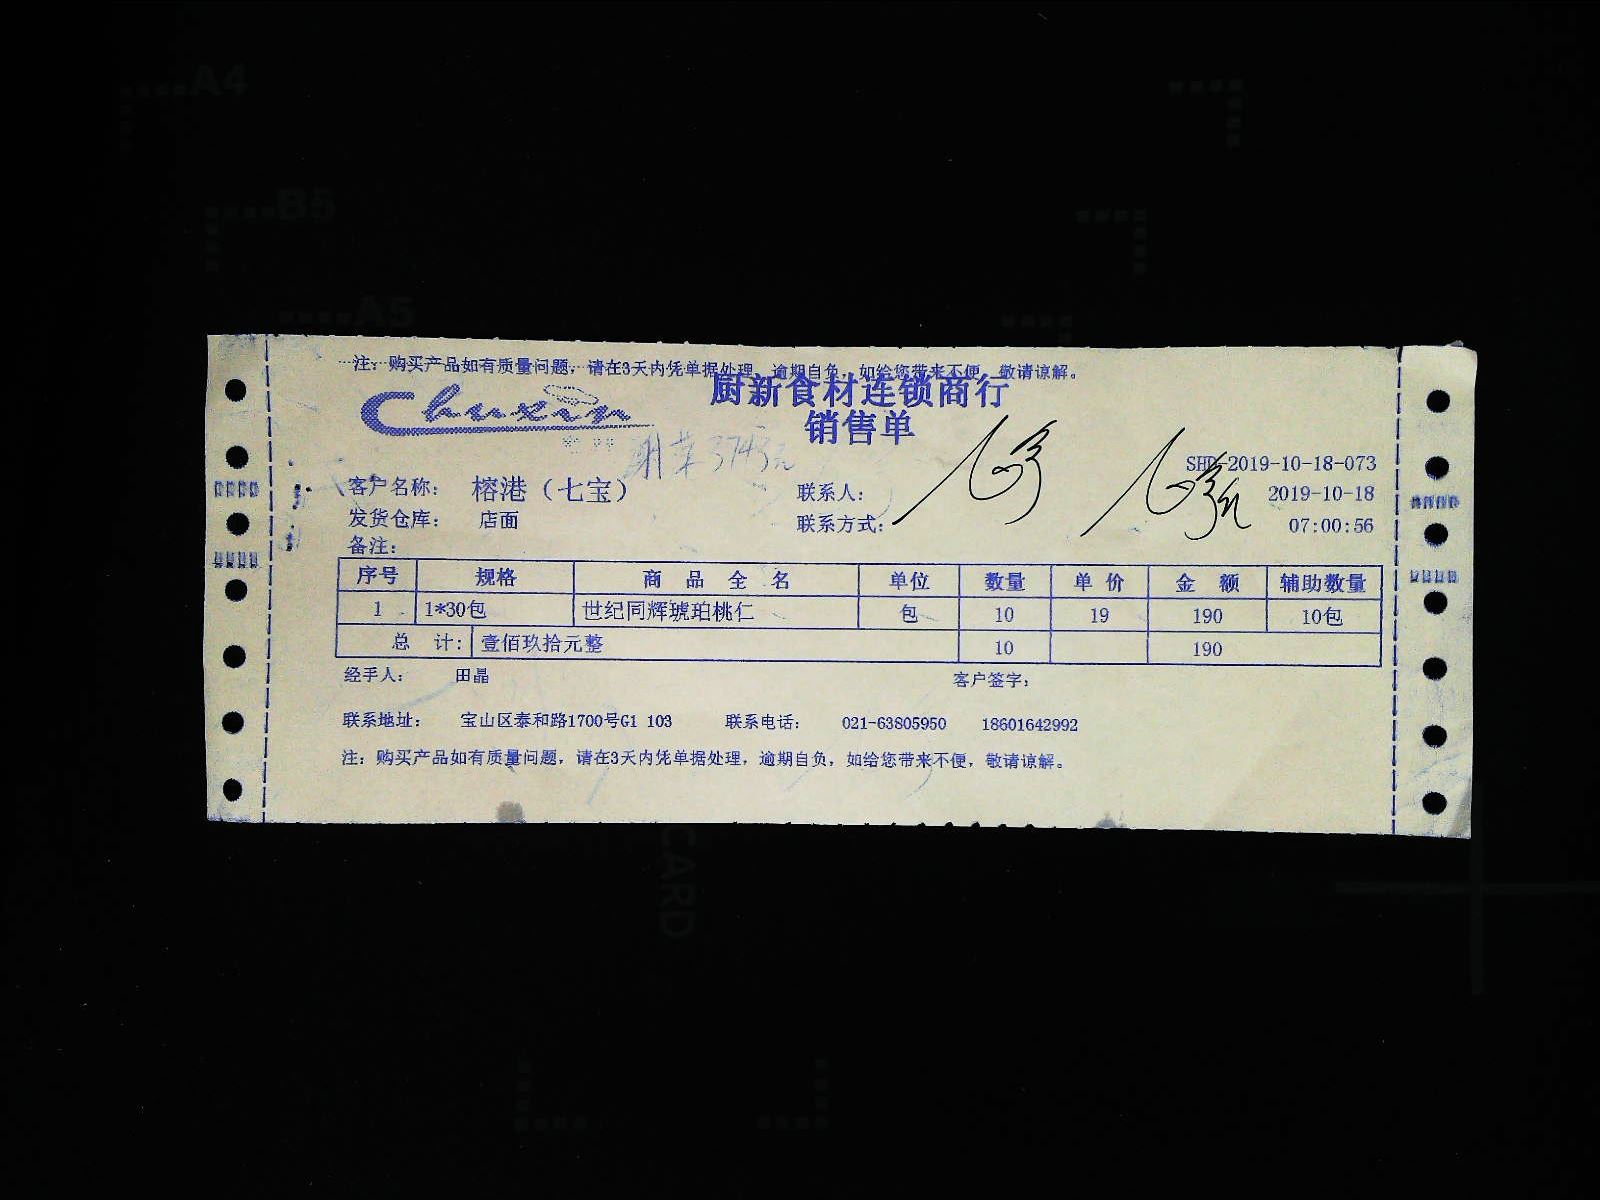 A4
B5
A5
注：购买产品如有质量问题，请在3天内凭单据处理，逾期自负，如给您带来不便，敬请谅解。
Chuxin
厨新食材连锁商行
销售单
SHD-2019-10-18-073
客户名称： 榕港（七宝） 联系人： 2019-10-18
发货仓库： 店面 联系方式： 07:00:56
备注：
序号 规格 商品全名 单位 数量 单价 金额 辅助数量
1 1*30包 世纪同辉琥珀桃仁 包 10 19 190 10包
总 计： 壹佰玖拾元整 10 190
经手人： 田晶 客户签字：
联系地址： 宝山区泰和路1700号G1 103 联系电话： 021-63805950 18601642992
注：购买产品如有质量问题，请在3天内凭单据处理，逾期自负，如给您带来不便，敬请谅解。
CARD